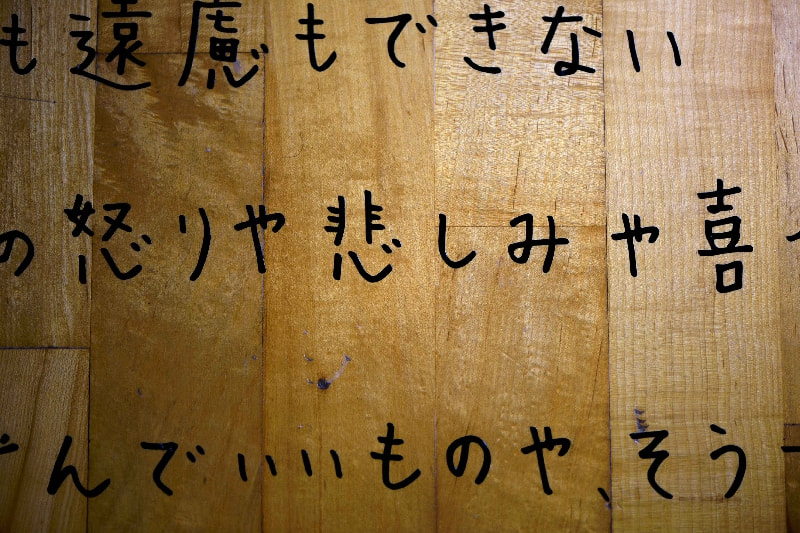 も遠慮もできない
の怒りや悲しみや喜
んでいいものや、そう